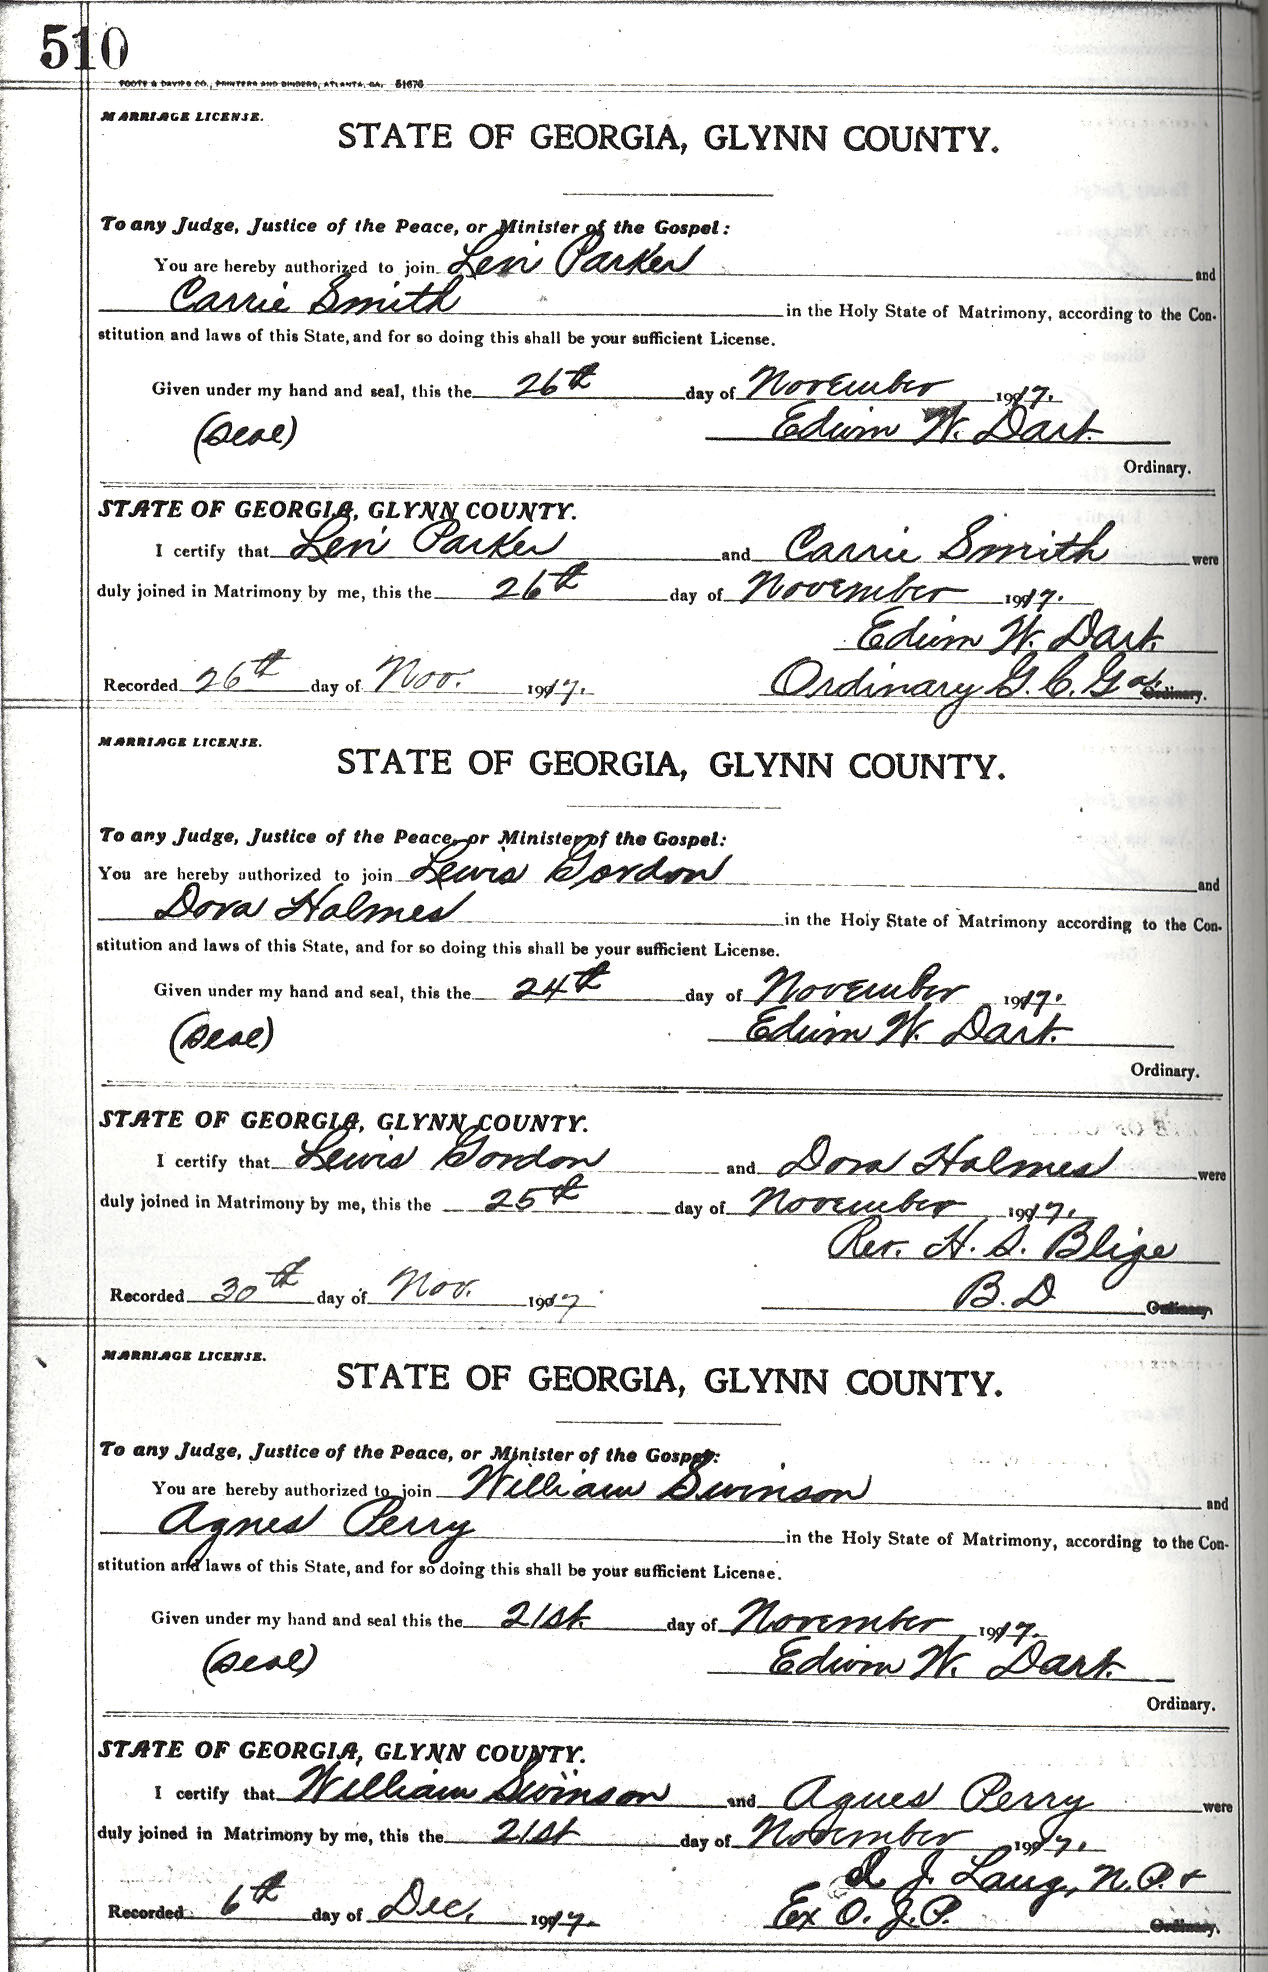 510
FOOTE & DAVIES CO., PRINTERS AND BINDERS, ATLANTA, GA. 51676
MARRIAGE LICENSE.
STATE OF GEORGIA, GLYNN COUNTY.
To any Judge, Justice of the Peace, or Minister of the Gospel:
You are hereby authorized to join Levi Parker and
Carrie Smith in the Holy State of Matrimony, according to the Con-
stitution and laws of this State, and for so doing this shall be your sufficient License.
Given under my hand and seal, this the 26th day of November 1917.
(Seal) Edwin W. Dart.
Ordinary.
STATE OF GEORGIA, GLYNN COUNTY.
I certify that Levi Parker and Carrie Smith were
duly joined in Matrimony by me, this the 26th day of November 1917.
Edwin W. Dart.
Recorded 26th day of Nov. 1917. Ordinary G. C. Ga. Ordinary.
MARRIAGE LICENSE.
STATE OF GEORGIA, GLYNN COUNTY.
To any Judge, Justice of the Peace, or Minister of the Gospel:
You are hereby authorized to join Lewis Gordon and
Dora Holmes in the Holy State of Matrimony according to the Con-
stitution and laws of this State, and for so doing this shall be your sufficient License.
Given under my hand and seal, this the 24th day of November 1917.
(Seal) Edwin W. Dart.
Ordinary.
STATE OF GEORGIA, GLYNN COUNTY.
I certify that Lewis Gordon and Dora Holmes were
duly joined in Matrimony by me, this the 25th day of November 1917.
Rev. H. S. Blige
Recorded 30th day of Nov. 1917 B. D Ordinary.
MARRIAGE LICENSE.
STATE OF GEORGIA, GLYNN COUNTY.
To any Judge, Justice of the Peace, or Minister of the Gospel:
You are hereby authorized to join William Swinson and
Agnes Perry in the Holy State of Matrimony, according to the Con-
stitution and laws of this State, and for so doing this shall be your sufficient License.
Given under my hand and seal this the 21st. day of November 1917.
(Seal) Edwin W. Dart.
Ordinary.
STATE OF GEORGIA, GLYNN COUNTY.
I certify that William Swinson and Agnes Perry were
duly joined in Matrimony by me, this the 21st day of November 1917.
J. Laug, N. P. &
Recorded 6th day of Dec. 1917. Ex O. J. P. Ordinary.